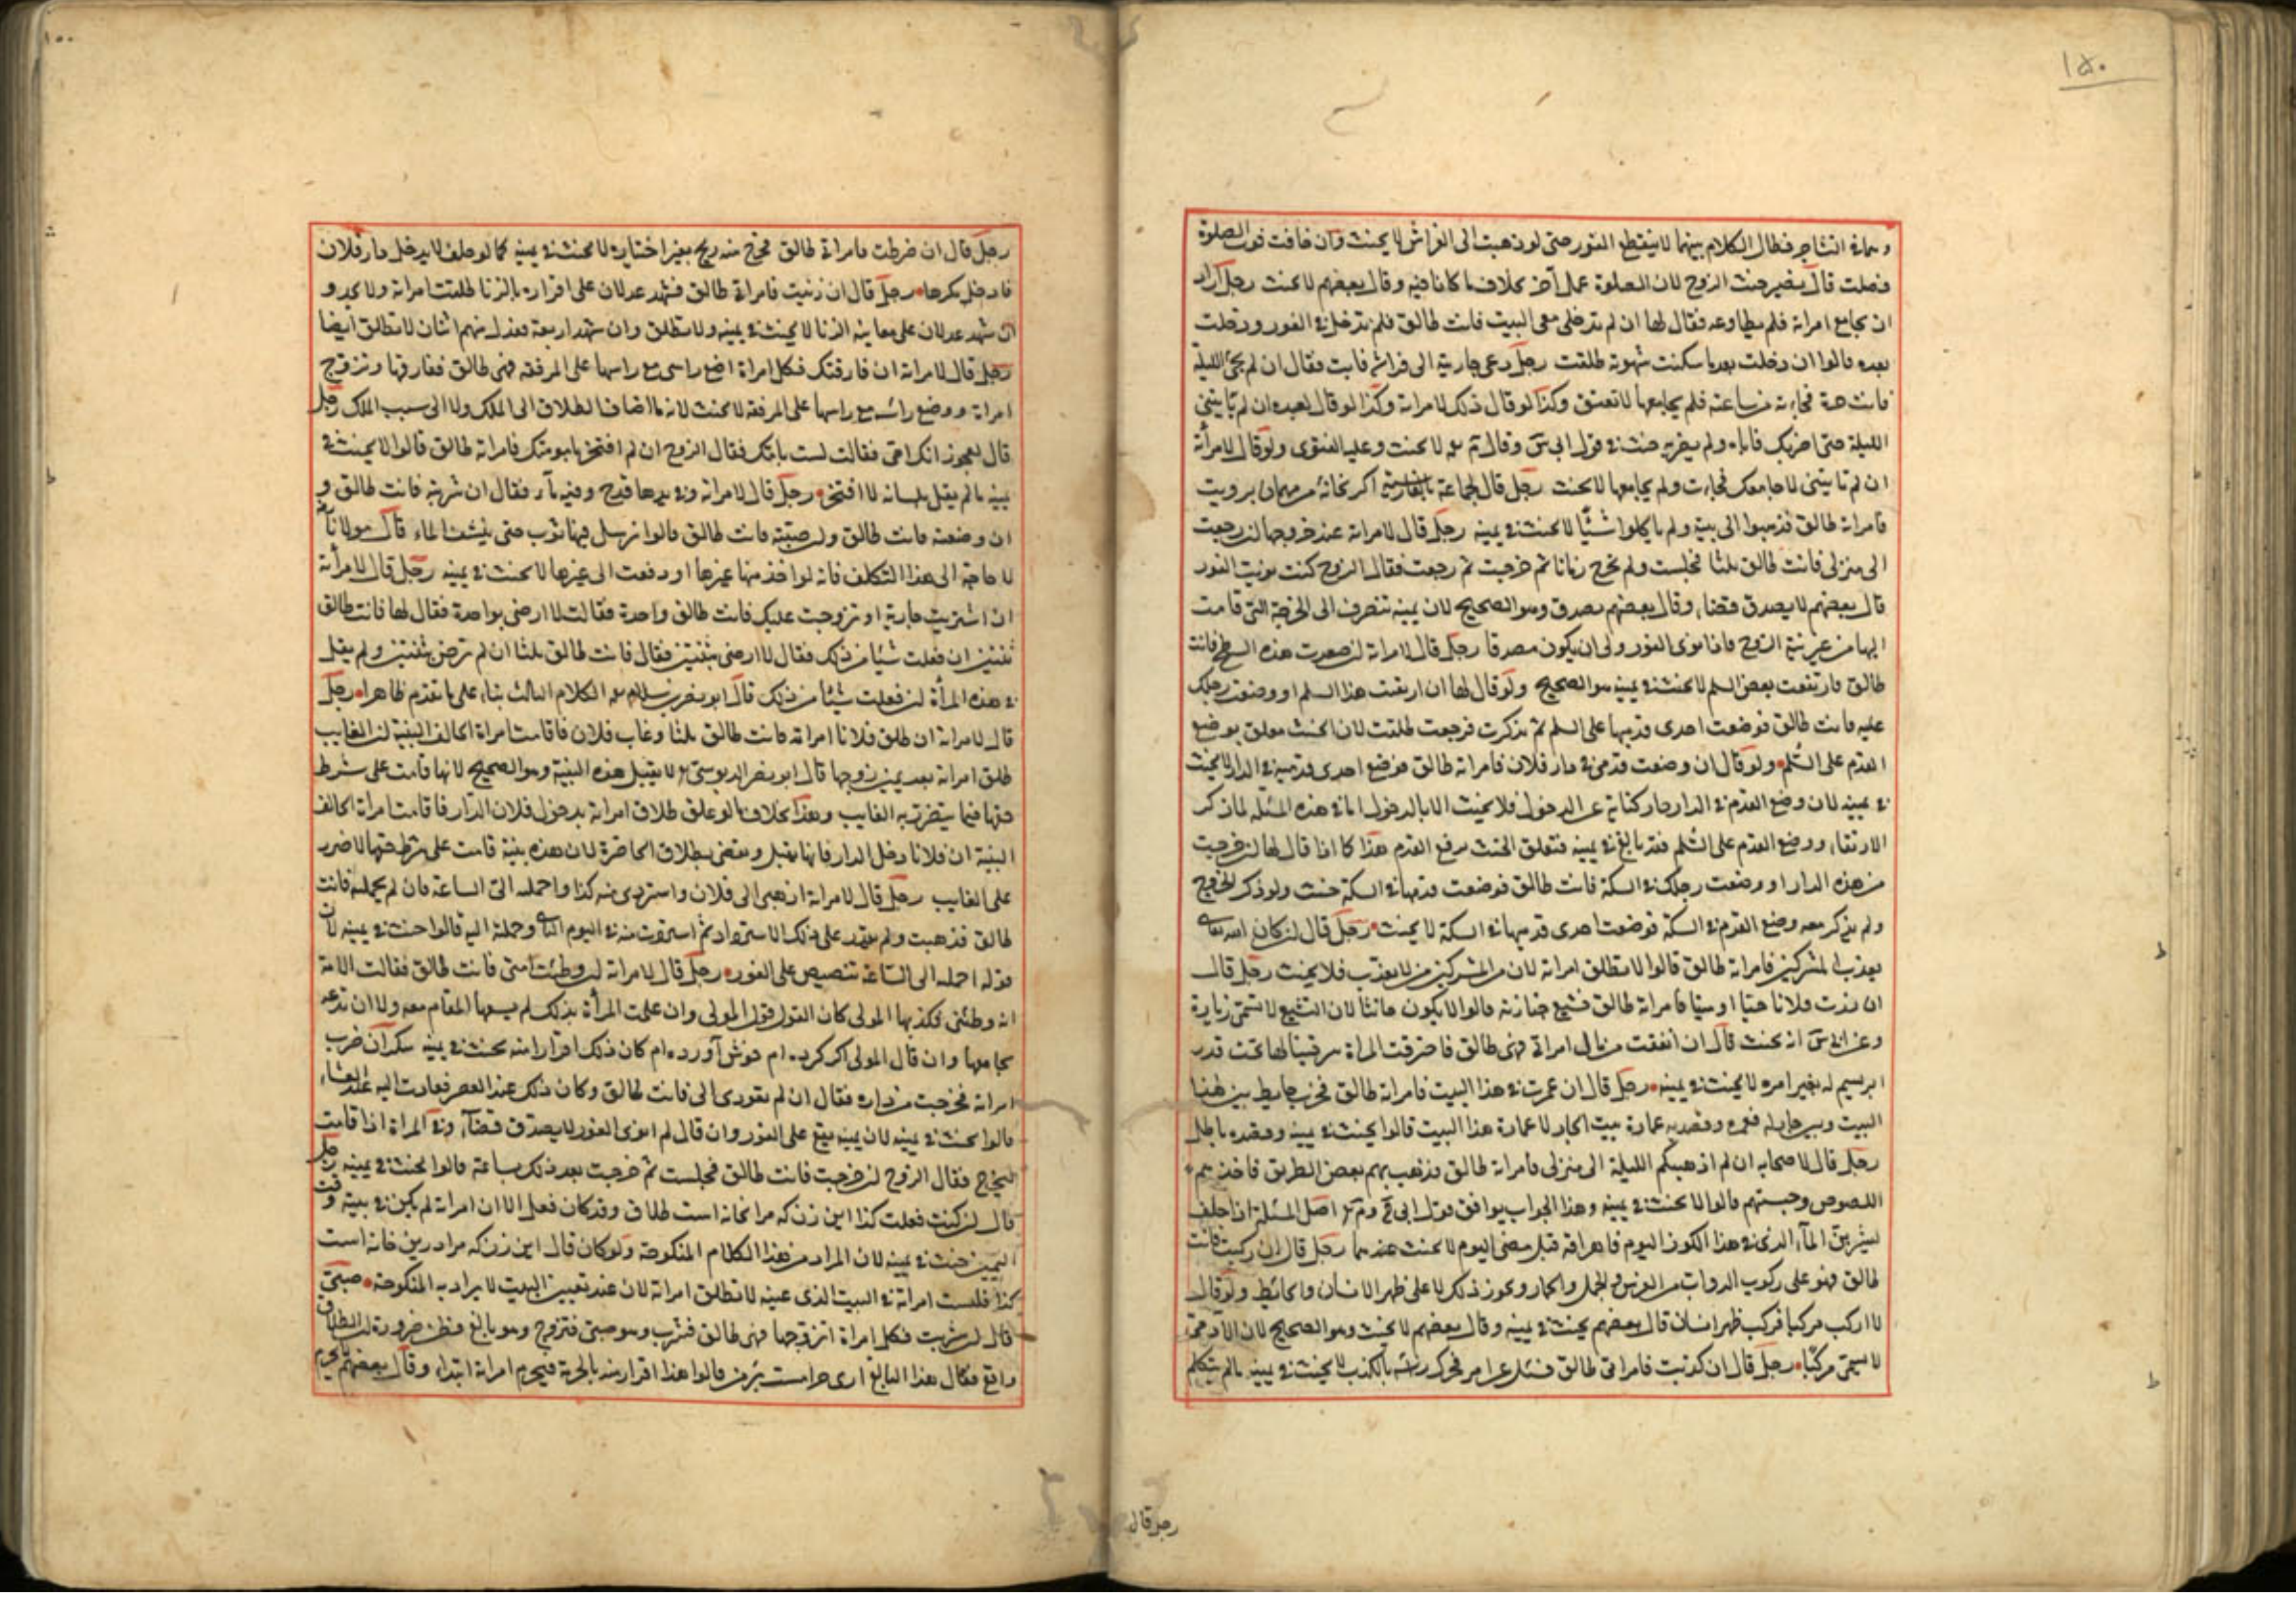 ١٥٠
وبماه التشاجر فطال الكلام بينهما لا ينقطع الفور حتى لو ذهبت الى الفراش لا يحنث وان خافت فوت الصلوة
فصلت قال نصير حنث الزوج لان الصلوة عمل آخر بخلاف ما كانا فيه وقال بعضهم لا يحنث رجل اراد
ان يجامع امراته فلم يطاوعه فقال لها ان لم تدخلي معي البيت فانت طالق فلم تدخل في الفور ودخلت
بعده قالوا ان دخلت بعد ما سكنت شهوته طلقت رجل دعى جارية الى فراشه فابت فقال ان لم تجئ الليلة
فانت حرة فجاءته من ساعته فلم يجامعها لا تعتق وكذا لو قال ذلك لامراته وكذا لو قال لعبده ان لم تاتيني
الليلة حتى اضربك فاتاه ولم يضربه حنث في قول ابي س وقال م لا يحنث وعليه الفتوى ولو قال لامرأته
ان لم تاتيني لاجامعك فجاءت ولم يجامعها لا يحنث رجل قال لجماعة بالفارسية اكر بخانة من مهمان برويت
فامراته طالق فذهبوا الى بيته ولم ياكلوا شيئا لا يحنث في يمينه رجل قال لامراته عند خروجها ان رجعت
الى منزلي فانت طالق ثلثا فجلست ولم تخرج زمانا ثم خرجت ثم رجعت فقال الزوج كنت نويت الفور
قال بعضهم لا يصدق قضاء وقال بعضهم يصدق وهو الصحيح لان يمينه تنصرف الى الخرجة التي قامت
اليها من غير نية الزوج فاذا نوى الفور اولى ان يكون مصدقا رجل قال لامراته ان صعدت هذه السطح فانت
طالق فارتفعت بعض السلم لا يحنث في يمينه هو الصحيح ولو قال لها ان ارتقت هذا السلم او وضعت رجلك
عليه فانت طالق فوضعت احدى قدميها على السلم ثم تذكرت فرجعت طلقت لان الحنث معلق بوضع
القدم على السلم ولو قال ان وضعت قدمي في دار فلان فامراته طالق فوضع احدى قدميه في الدار لا يحنث
في يمينه لان وضع القدم في الدار صار كناية عن الدخول فلا يحنث الا بالدخول اما في هذه المسئلة لما ذكر
الارتقاء ووضع القدم على السلم فقد بالغ في يمينه فتعلق الحنث بوضع القدم هذا كما اذا قال لها ان خرجت
من هذه الدار او وضعت رجلك في السكة فانت طالق فوضعت قدمها في السكة حنث ولو ذكر الخروج
ولم يذكر معه وضع القدم في السكة فوضعت احدى قدميها في السكة لا يحنث رجل قال ان كان الله تعالى
يعذب المشركين فامراته طالق قالوا لا تطلق امراته لان من المشركين من لا يعذب فلا يحنث رجل قال
ان زرت فلانا حيا او ميتا فامراته طالق فشيع جنازته قالوا لا يكون حانثا لان التشيع لا تسمى زيارة
وعن ابي س انه يحنث قال ان انفقت من مال امراتي فهي طالق فاحترقت المراة
ابريسم له بغير امره لا يحنث في يمينه رجل قال ان عمرت في هذا البيت فامراته طالق فخرب حايط بين هذا
البيت وبين جار له فعمره وقصد به عمارة بيت الجار لا عمارة هذا البيت قالوا يحنث في يمينه وقصده باطل
رجل قال لاصحابه ان لم اذهب بكم الليلة الى منزلي فامراته طالق فذهب بهم بعض الطريق فاخذهم
اللصوص وحبستهم قالوا لا يحنث في يمينه وهذا الجواب يوافق قول ابي ح وم اصل المسئلة اذا حلف
ليشربن الماء الذي في هذا الكوز اليوم فاهراقه قبل مضي اليوم لا يحنث عندهما رجل قال ان ركبت فانت
طالق فهو على ركوب الدواب من الفرس والجمل والحمار ونحو ذلك لا على ظهر الانسان والحائط ولو قال
لا اركب مركبا فركب ظهر انسان قال بعضهم يحنث في يمينه وقال بعضهم لا يحنث وهو الصحيح لان الآدمي
لا يسمى مركبا رجل قال ان كذبت فامراتي طالق فسئل عن امر فحرك رأسه بالكذب لا يحنث في يمينه ما لم يتكلم
رجل قال
رجل قال ان ضرطت فامراته طالق فخرج منه ريح بغير اختياره لا يحنث في يمينه كما لو حلف لا يدخل دار فلان
فادخل مكرها رجل قال ان زنيت فامراتي طالق فشهد عدلان على اقراره بالزنا طلقت امراته ولا يحد و
ان شهد عدلان على معاينة الزنا لا يحنث في يمينه ولا تطلق وان شهد اربعة فعدل منهم اثنان لا تطلق ايضا
رجل قال لامراته ان فارقتك فكل امراة اضع راسي مع راسها على المرفقة فهي طالق ففارقها وتزوج
امراة ووضع راسه مع راسها على المرفقة لا يحنث لانه ما اضاف الطلاق الى الملك ولا الى سبب الملك رجل
قال لعجوز انك امي فقالت لست بامك فقال الزوج ان لم افتخر بامومتك فامراته طالق قالوا لا يحنث في
يمينه ما لم يقل بلسانه لا افتخر رجل قال لامراته وفي يدها قدح وفيه ماء فقال ان شربته فانت طالق و
ان وضعته فانت طالق وان صببته فانت طالق قالوا ترسل فيها ثوب حتى ينشف الماء قال مولانا
لا حاجة الى هذا التكلف فانه لو اخذ منها غيرها او دفعت الى غيرها لا يحنث في يمينه رجل قال لامرأته
ان اشتريت جارية او تزوجت عليك فانت طالق واحدة فقالت لا ارضى بواحدة فقال لها فانت طالق
ثنتين ان فعلت شيئا من ذلك فقال لا ارضى بثنتين فقال فانت طالق ثلثا ان لم ترض بثنتين ولم يقل
في هذه المرأة ان فعلت شيئا من ذلك قال ابو نصر بن سلام الكلام الثالث بناء على ما تقدم ظاهرا رجل
قال لامراته ان طلق فلانا امراته فانت طالق ثلثا وغاب فلان فاقامت امراة الحالف البينة ان الغايب
طلق امراته بعد يمين زوجها قال ابو نصر الدبوسي لا يقبل هذه البينة وهو الصحيح لانها قامت على شرط
حقها فيما يتضرر به الغايب وهذا بخلاف ما لو علق طلاق امراته بدخول فلان الدار فاقامت امراة الحالف
البينة ان فلانا دخل الدار فانها تقبل ويقضى بطلاق الحاضرة لان هذه بينة قامت على شرط حقها لا ضرر
على الغايب رجل قال لامراته اذهبي الى فلان واستردي منه كذا واحمله الي الساعة فان لم تحمله فانت
طالق فذهبت ولم تقدر على ذلك الاسترداد ثم استردت منه في اليوم الثاني وحملته اليه قالوا حنث في يمينه لان
قوله احمله الي الساعة تنصيص على الفور رجل قال لامراته ان وطئت امتي فانت طالق فقالت الامة
انه وطئني وكذبها المولى كان القول قول المولى وان علمت المرأة بذلك لم يسعها المقام معه ولا ان تدعه
يجامعها وان قال المولى اكر كرده ام خوش آورده ام كان ذلك اقرارا منه يحنث في يمينه سكران ضرب
امراته فخرجت من داره فقال ان لم تعودي الي فانت طالق وكان ذلك عند العصر فعادت اليه عند العشاء
قالوا يحنث في يمينه لان يمينه يقع على الفور وان قال لم انوي الفور لا يصدق قضاء وفي المراة اذا قامت
ليخرج فقال الزوج ان خرجت فانت طالق فجلست ثم خرجت بعد ذلك بساعة قالوا لا يحنث في يمينه رجل
قال ان كنت فعلت كذا اين زن كه مرا بخانه است طلاق وقد كان فعل الا ان امراته لم يكن في بيته وقت
اليمين حنث في يمينه لان المراد من هذا الكلام المنكوحة ولو كان قال اين زن كه مرا درين خانه است
كذا فليست امرأته في البيت الذي عينه لا تطلق امراته لان عند تعيين البيت لا يراد به المنكوحة صبي
قال ان شربت فكل امراة اتزوجها فهي طالق فشرب وهو صبي فتزوج وهو بالغ فظن ضرورة ان الطلاق
واقع فقال هذا البالغ اري حرامست بر من قالوا هذا اقرار منه بالحرمة فيحرم امراته ابتداء وقال بعضهم لا يحرم